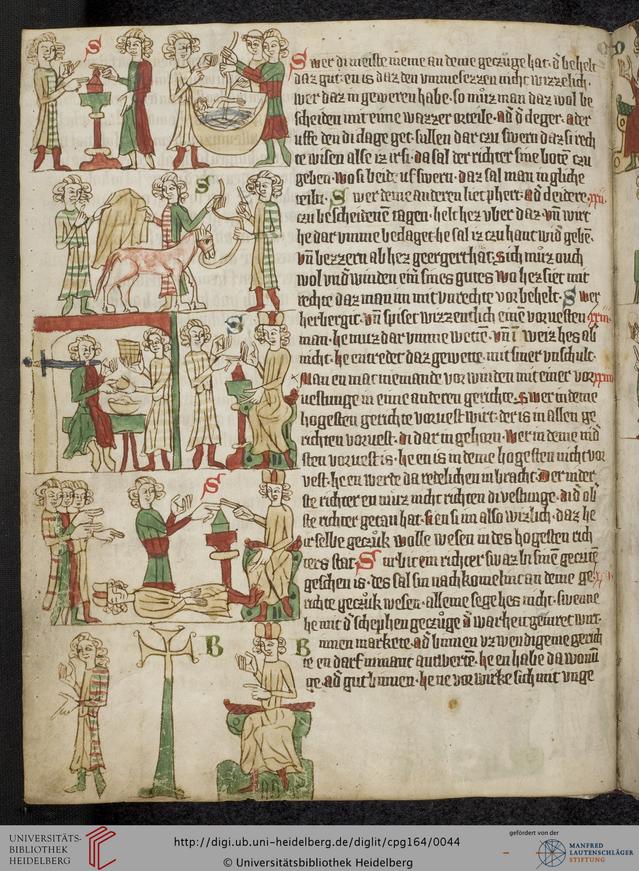 Swer di meiste menie an deme geczuge hat. d' behelt
daz gut. en is daz den vmmesezzen nicht wizzelich.
wer daz in geweren habe. so muz man daz wol be
scheiden mit eime wazzer orteile. ad' d' deger. ader
uffe den di clage get. sullen dar czu swern daz si rech
te wisen alse iz ir si. da sal der richter sine boten czu
geben. wo si beide uf swern. daz sal man in gliche
teiln. Swer deme anderen liet phert. ad'
czu bescheidenen tagen. helt hez vber daz. vn wirt
he dar vmme beclaget. he sal iz czu hant wid' geben.
vn bezzern ab hez geergert hat. Sich muz ouch
wol vnd'winden ein sines gutes wo hez siet mit
rechte daz man im mit vnrechte vor behelt. Swer
herbergit. vn spiset wizzentlich einen vor uesten
man. he muz dar vmme wetten. vn weiz hes ab
nicht. he entredet daz gewette. mit siner vnschult.
Man en mac niemande vor winden mit einer vor
uestunge in eime anderen gerichte. Swer in deme
hogesten gerichte voruest wirt. der is in allen ge
richten voruest. di dar in gehorn. Wer in deme
sten voruest is. he en is in deme hogesten nicht vor
vest. he en werde da redelichen in bracht. Der
ste richter en muz nicht richten di vestunge. di d'
ste richter getan hat. si en si im also wizlich. daz he
ir selbe geczuk wolle wesen in des hogesten rich
ters stat. Stirbit ein richter swaz bi sinen gecziten
geschen is. des sal sin nachkomelinc an deme ge
richte geczuk wesen. alleine sege hes nicht. swenne
he mit d' schephen geczuge d' warheit geinret wirt.
Binnen markete. ad' binnen vzwendigeme gerich
te en darf nimant antwerten. he en habe da wonun
ge. ad' gut binnen. he ne vorwirke sich mit vnge
UNIVERSITÄTS-
BIBLIOTHEK
HEIDELBERG
http://digi.ub.uni-heidelberg.de/diglit/cpg164/0044
© Universitätsbibliothek Heidelberg
gefördert von der
MANFRED
LAUTENSCHLÄGER
STIFTUNG